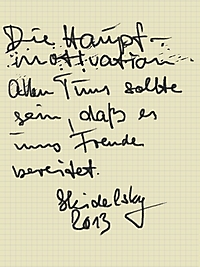 Die Haupt-
motivation
allen Tuns sollte
sein, daß es
uns Freude
bereitet.
Skidelsky
2013